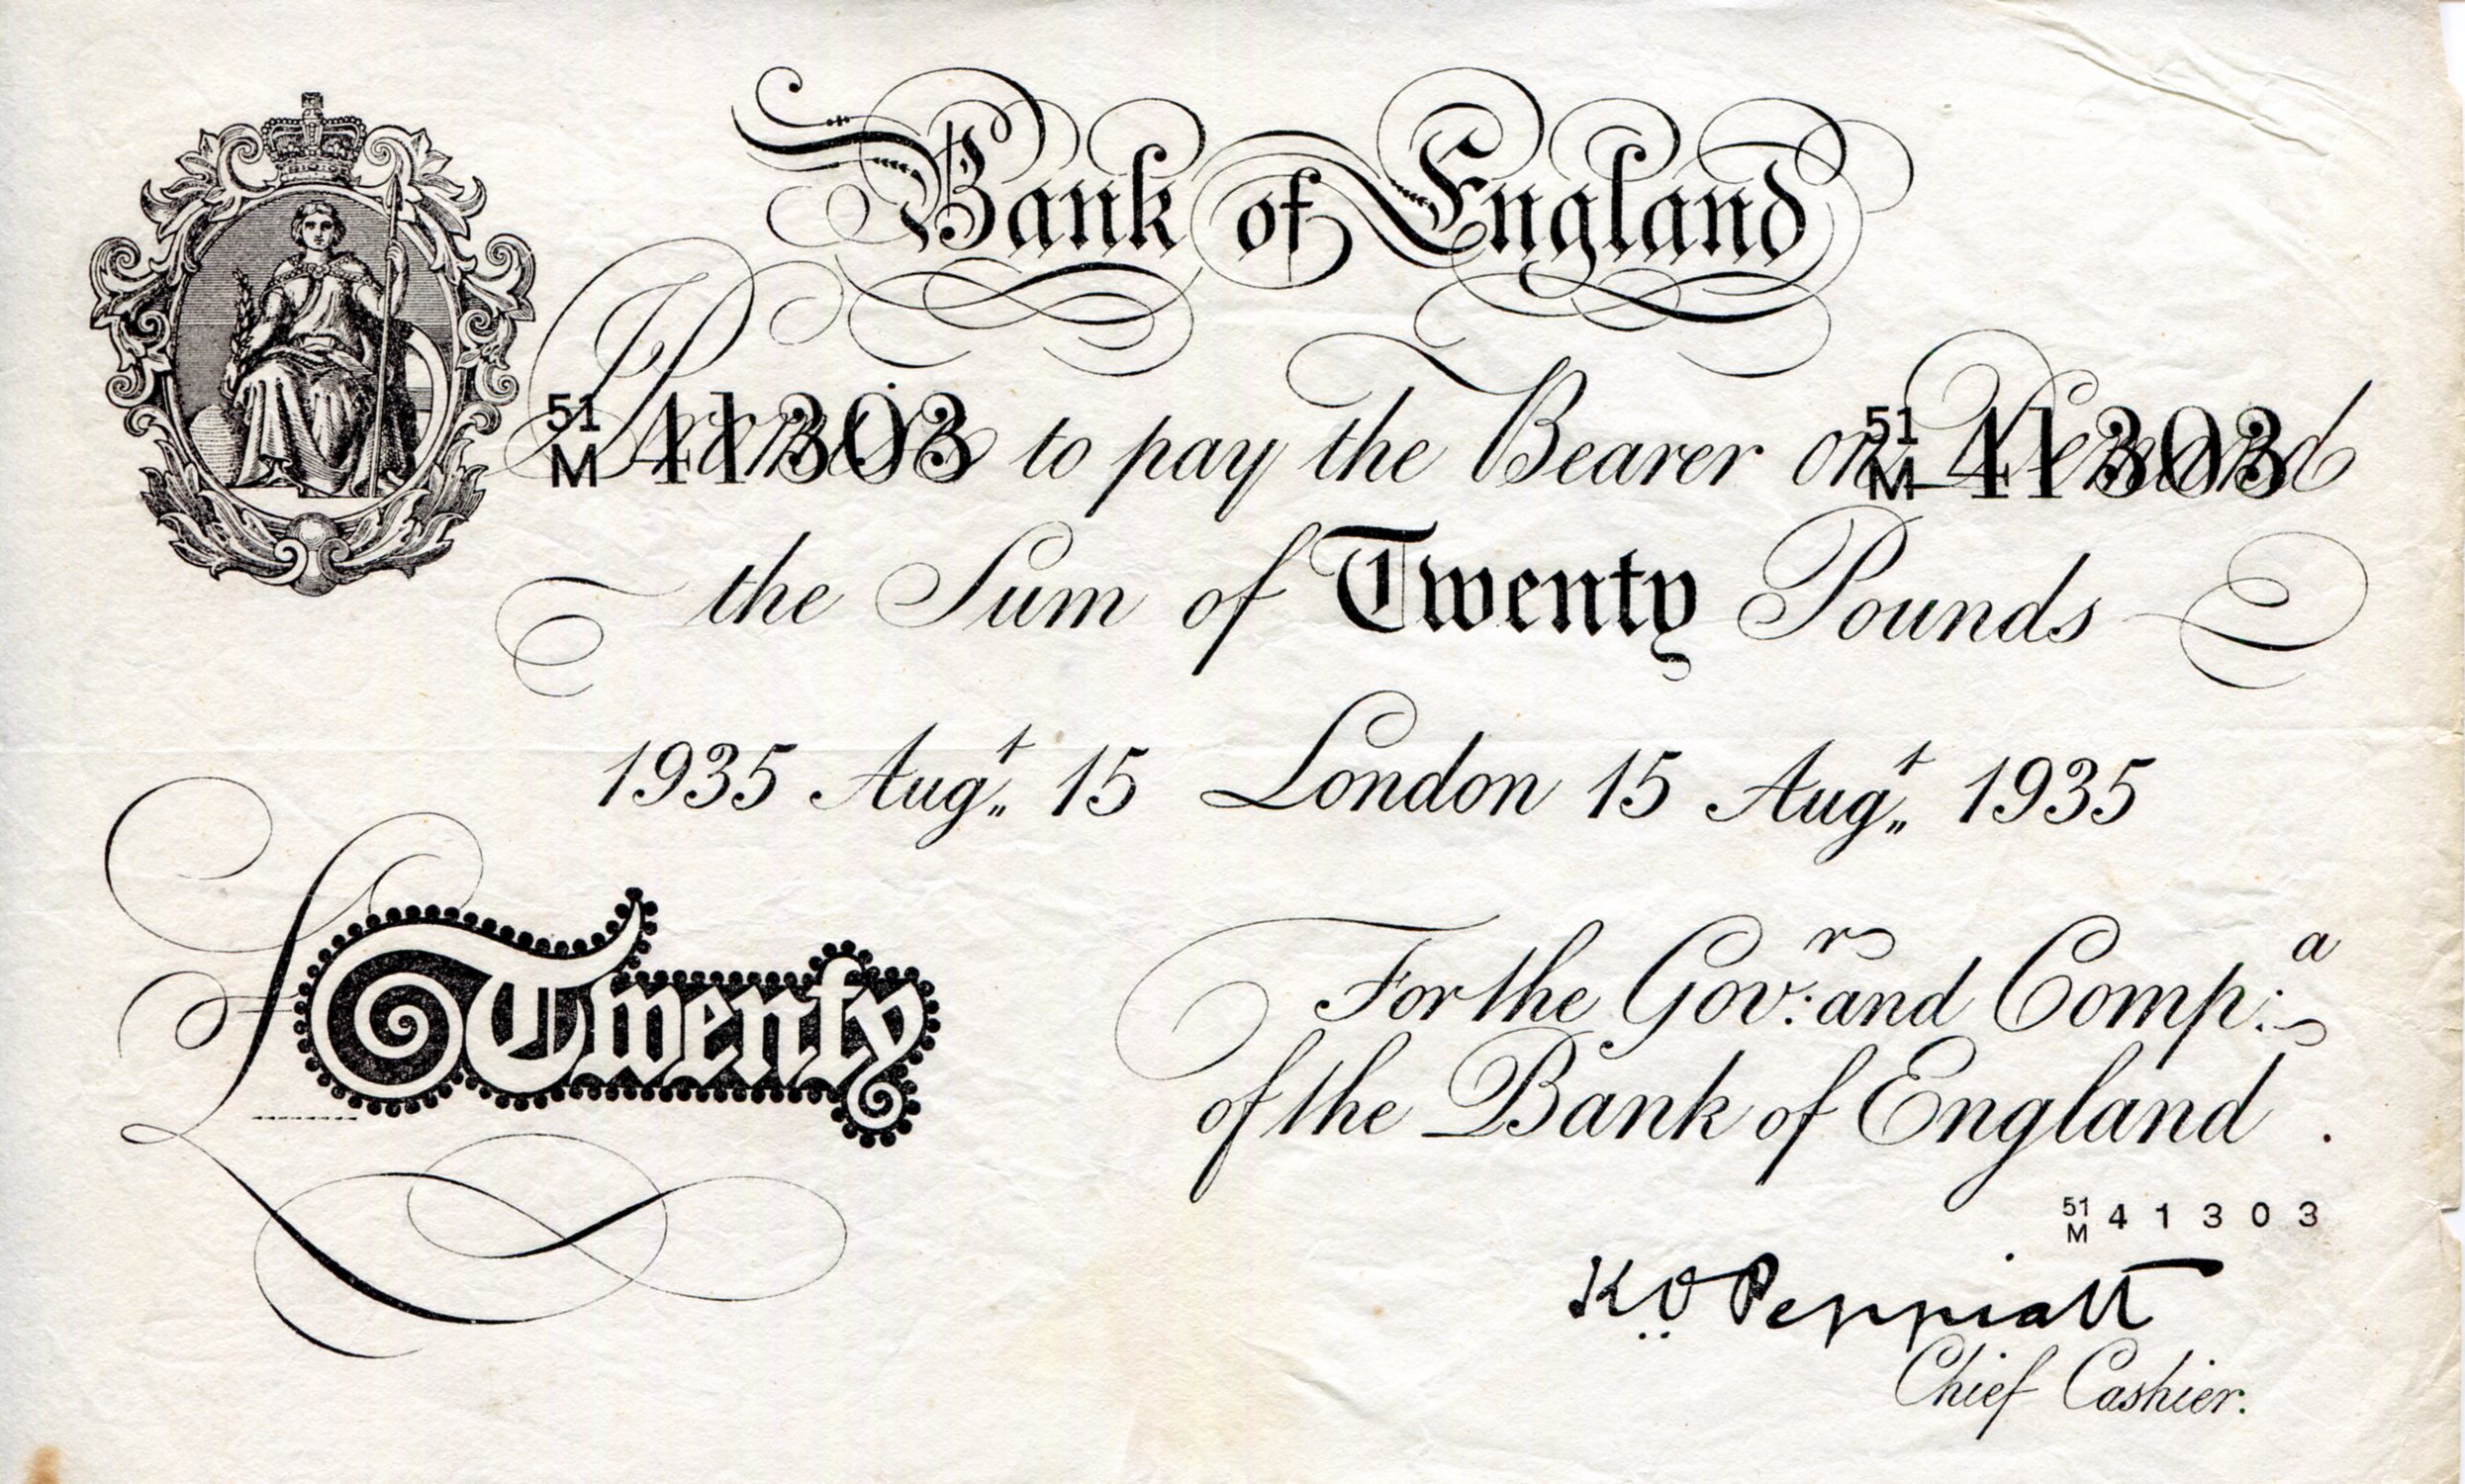 Bank of England
51/M 41303 Promise to pay the Bearer on Demand 51/M 41303
the Sum of Twenty Pounds
1935 Augt. 15 London 15 Augt. 1935
£Twenty
For the Govrs. and Compa.
of the Bank of England.
51/M 41303
K.O. Peppiatt
Chief Cashier.